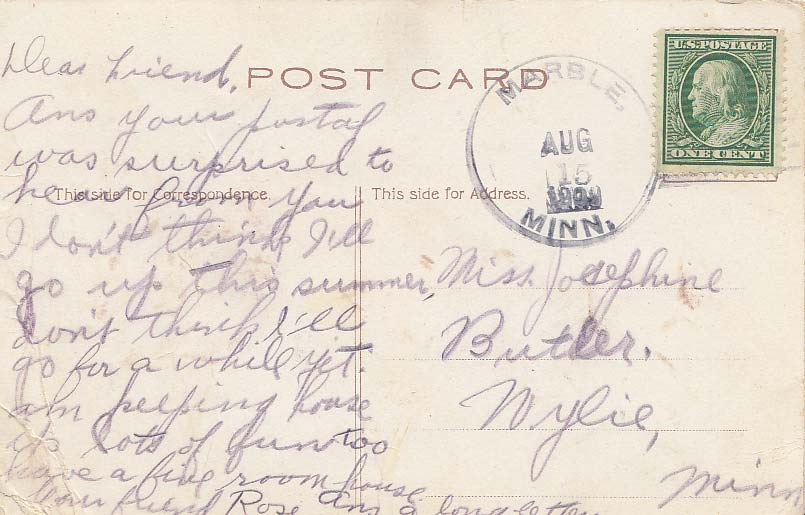 Dear Friend,
POST CARD
Ans your postal
was surprised to
hear from you
This side for Correspondence.
I don't think I'll
go up this summer,
don't think I'll
go for a while yet.
am keeping house
it's lots of fun too
have a five room house.
Your friend Rose Ans a long letter
This side for Address.
MARBLE,
AUG
15
MINN.
U.S. POSTAGE
ONE CENT
Miss. Josephine
Butler.
Wylie,
Minn